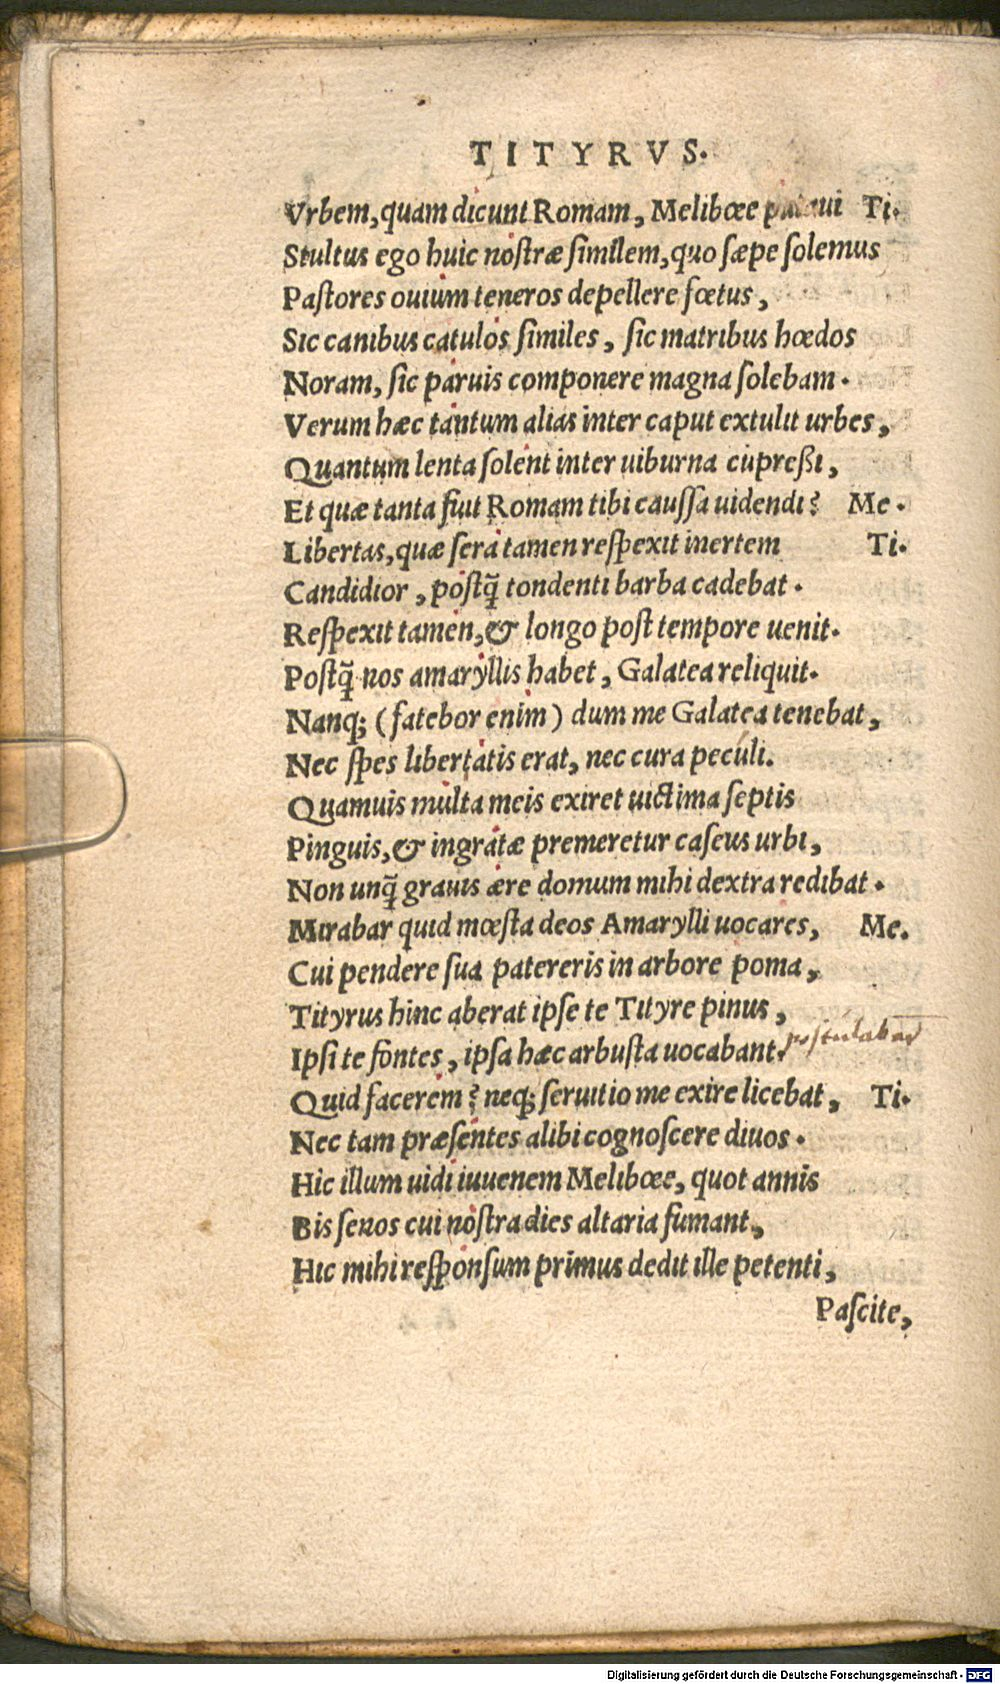 TITYRVS.
Vrbem, quam dicunt Romam, Melibœe putaui Ti.
Stultus ego huic nostræ similem, quo sæpe solemus
Pastores ouium teneros depellere fœtus,
Sic canibus catulos similes, sic matribus hœdos
Noram, sic paruis componere magna solebam.
Verum hæc tantum alias inter caput extulit urbes,
Quantum lenta solent inter uiburna cupreßi,
Et quæ tanta fuit Romam tibi caussa uidendi? Me.
Libertas, quæ sera tamen respexit inertem Ti.
Candidior, postq̃ tondenti barba cadebat.
Respexit tamen, & longo post tempore uenit.
Postq̃ nos amaryllis habet, Galatea reliquit.
Nanq; (fatebor enim) dum me Galatea tenebat,
Nec spes libertatis erat, nec cura peculi.
Quamuis multa meis exiret uictima septis
Pinguis, & ingratæ premeretur caseus urbi,
Non unq̃ grauis ære domum mihi dextra redibat.
Mirabar quid mœsta deos Amarylli uocares, Me.
Cui pendere sua patereris in arbore poma,
Tityrus hinc aberat ipse te Tityre pinus,
Ipsi te fontes, ipsa hæc arbusta uocabant. postulabant
Quid facerem? neq; seruitio me exire licebat, Ti.
Nec tam præsentes alibi cognoscere diuos.
Hic illum uidi iuuenem Melibœe, quot annis
Bis senos cui nostra dies altaria fumant,
Hic mihi responsum primus dedit ille petenti,
Pascite,
Digitalisierung gefördert durch die Deutsche Forschungsgemeinschaft - DFG